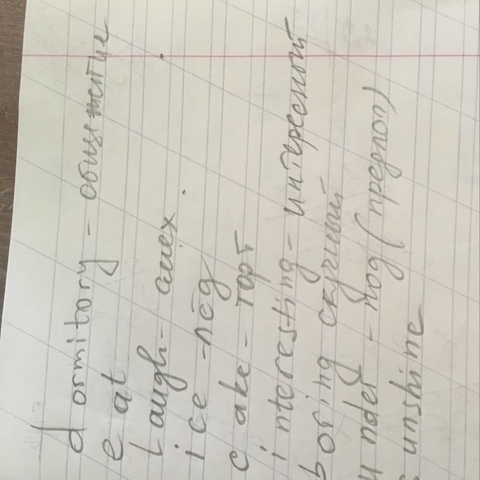 dormitory - общежитие
eat
laugh - смех
ice - лёд
cake - торт
interesting - интересный
boring скучный
under - под (предлог)
sunshine